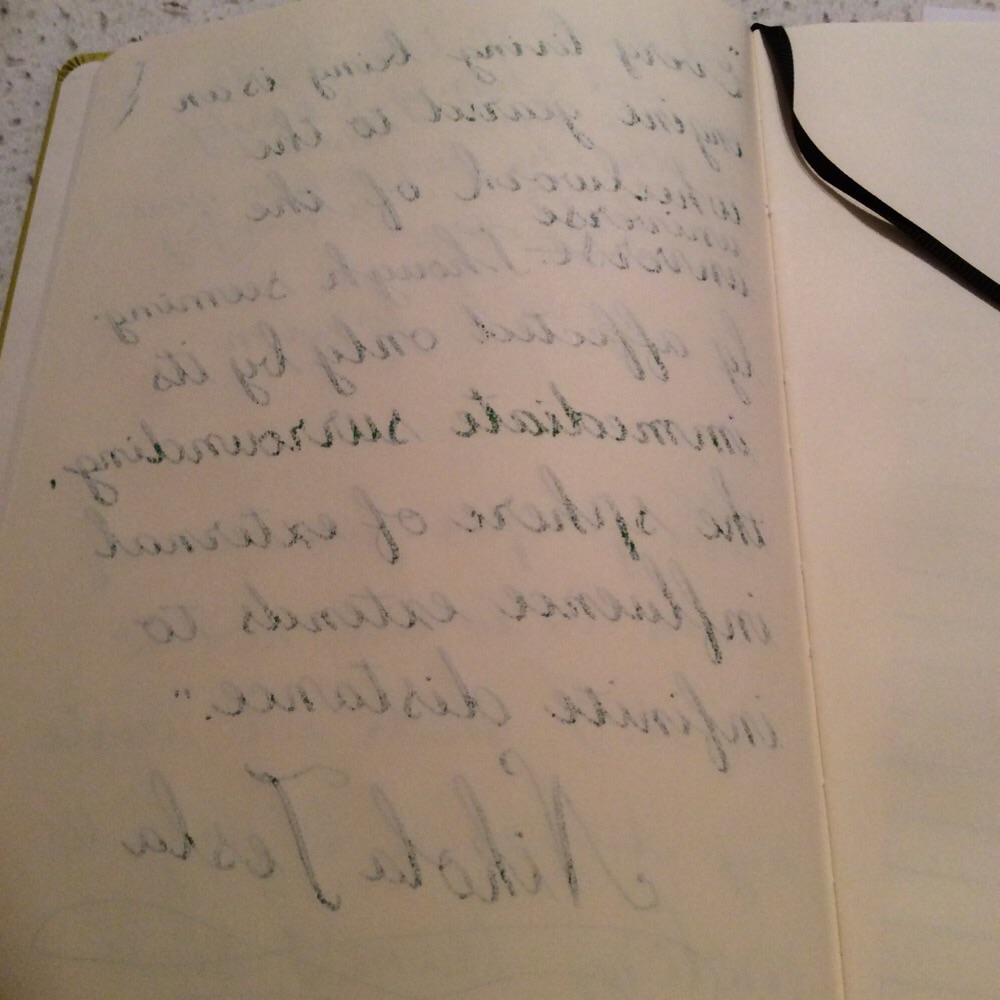 "Every living being is an
engine geared to the
wheelwork of the
universe
unverse. Though seeming-
ly affected only by its
immediate surrounding,
the sphere of external
influence extends to
infinite distance."
Nikola Tesla